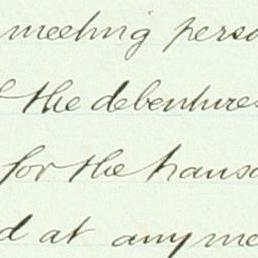 meeting perso
the debentures
for the transa
d at any me